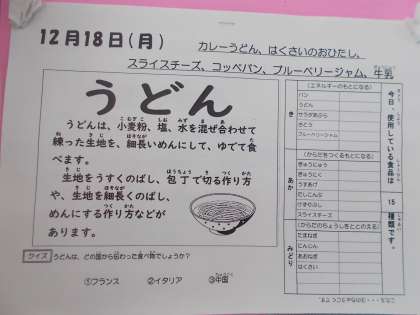 12月18日(月)
カレーうどん、はくさいのおひだし、
スライスチーズ、コッペパン、ブルーベリージャム、牛乳
うどん
うどんは、小麦粉、塩、水を混ぜ合わせて
練った生地を、細長いめんにして、ゆでて食
べます。
生地をうすくのばし、包丁で切る作り方
や、生地を細長くのばし、
めんにする作り方などが
あります。
クイズ うどんは、どの国から伝わった食べ物でしょうか?
①フランス ②イタリア ③中国
今日、使用している食品は
15
種類です。
き
(エネルギーのもとになる)
パン
うどん
サラダあぶら
さとう
ブルーベリージャム
あか
(からだをつくるもとになる)
ぎゅうにゅう
ぎゅうにく
うすあげ
だしこんぶ
けずりぶし
スライスチーズ
みどり
(からだのちょうしをととのえる)
たまねぎ
にんじん
あおねぎ
はくさい